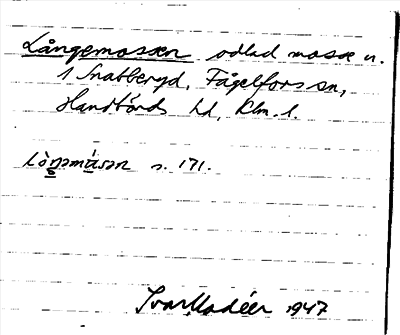 Långemossen odlad mosse n.
1 Snatteryd, Fågelfors sn,
Handbörds hd, Klm. l.
s. 171.
Ivar Modéer 1947